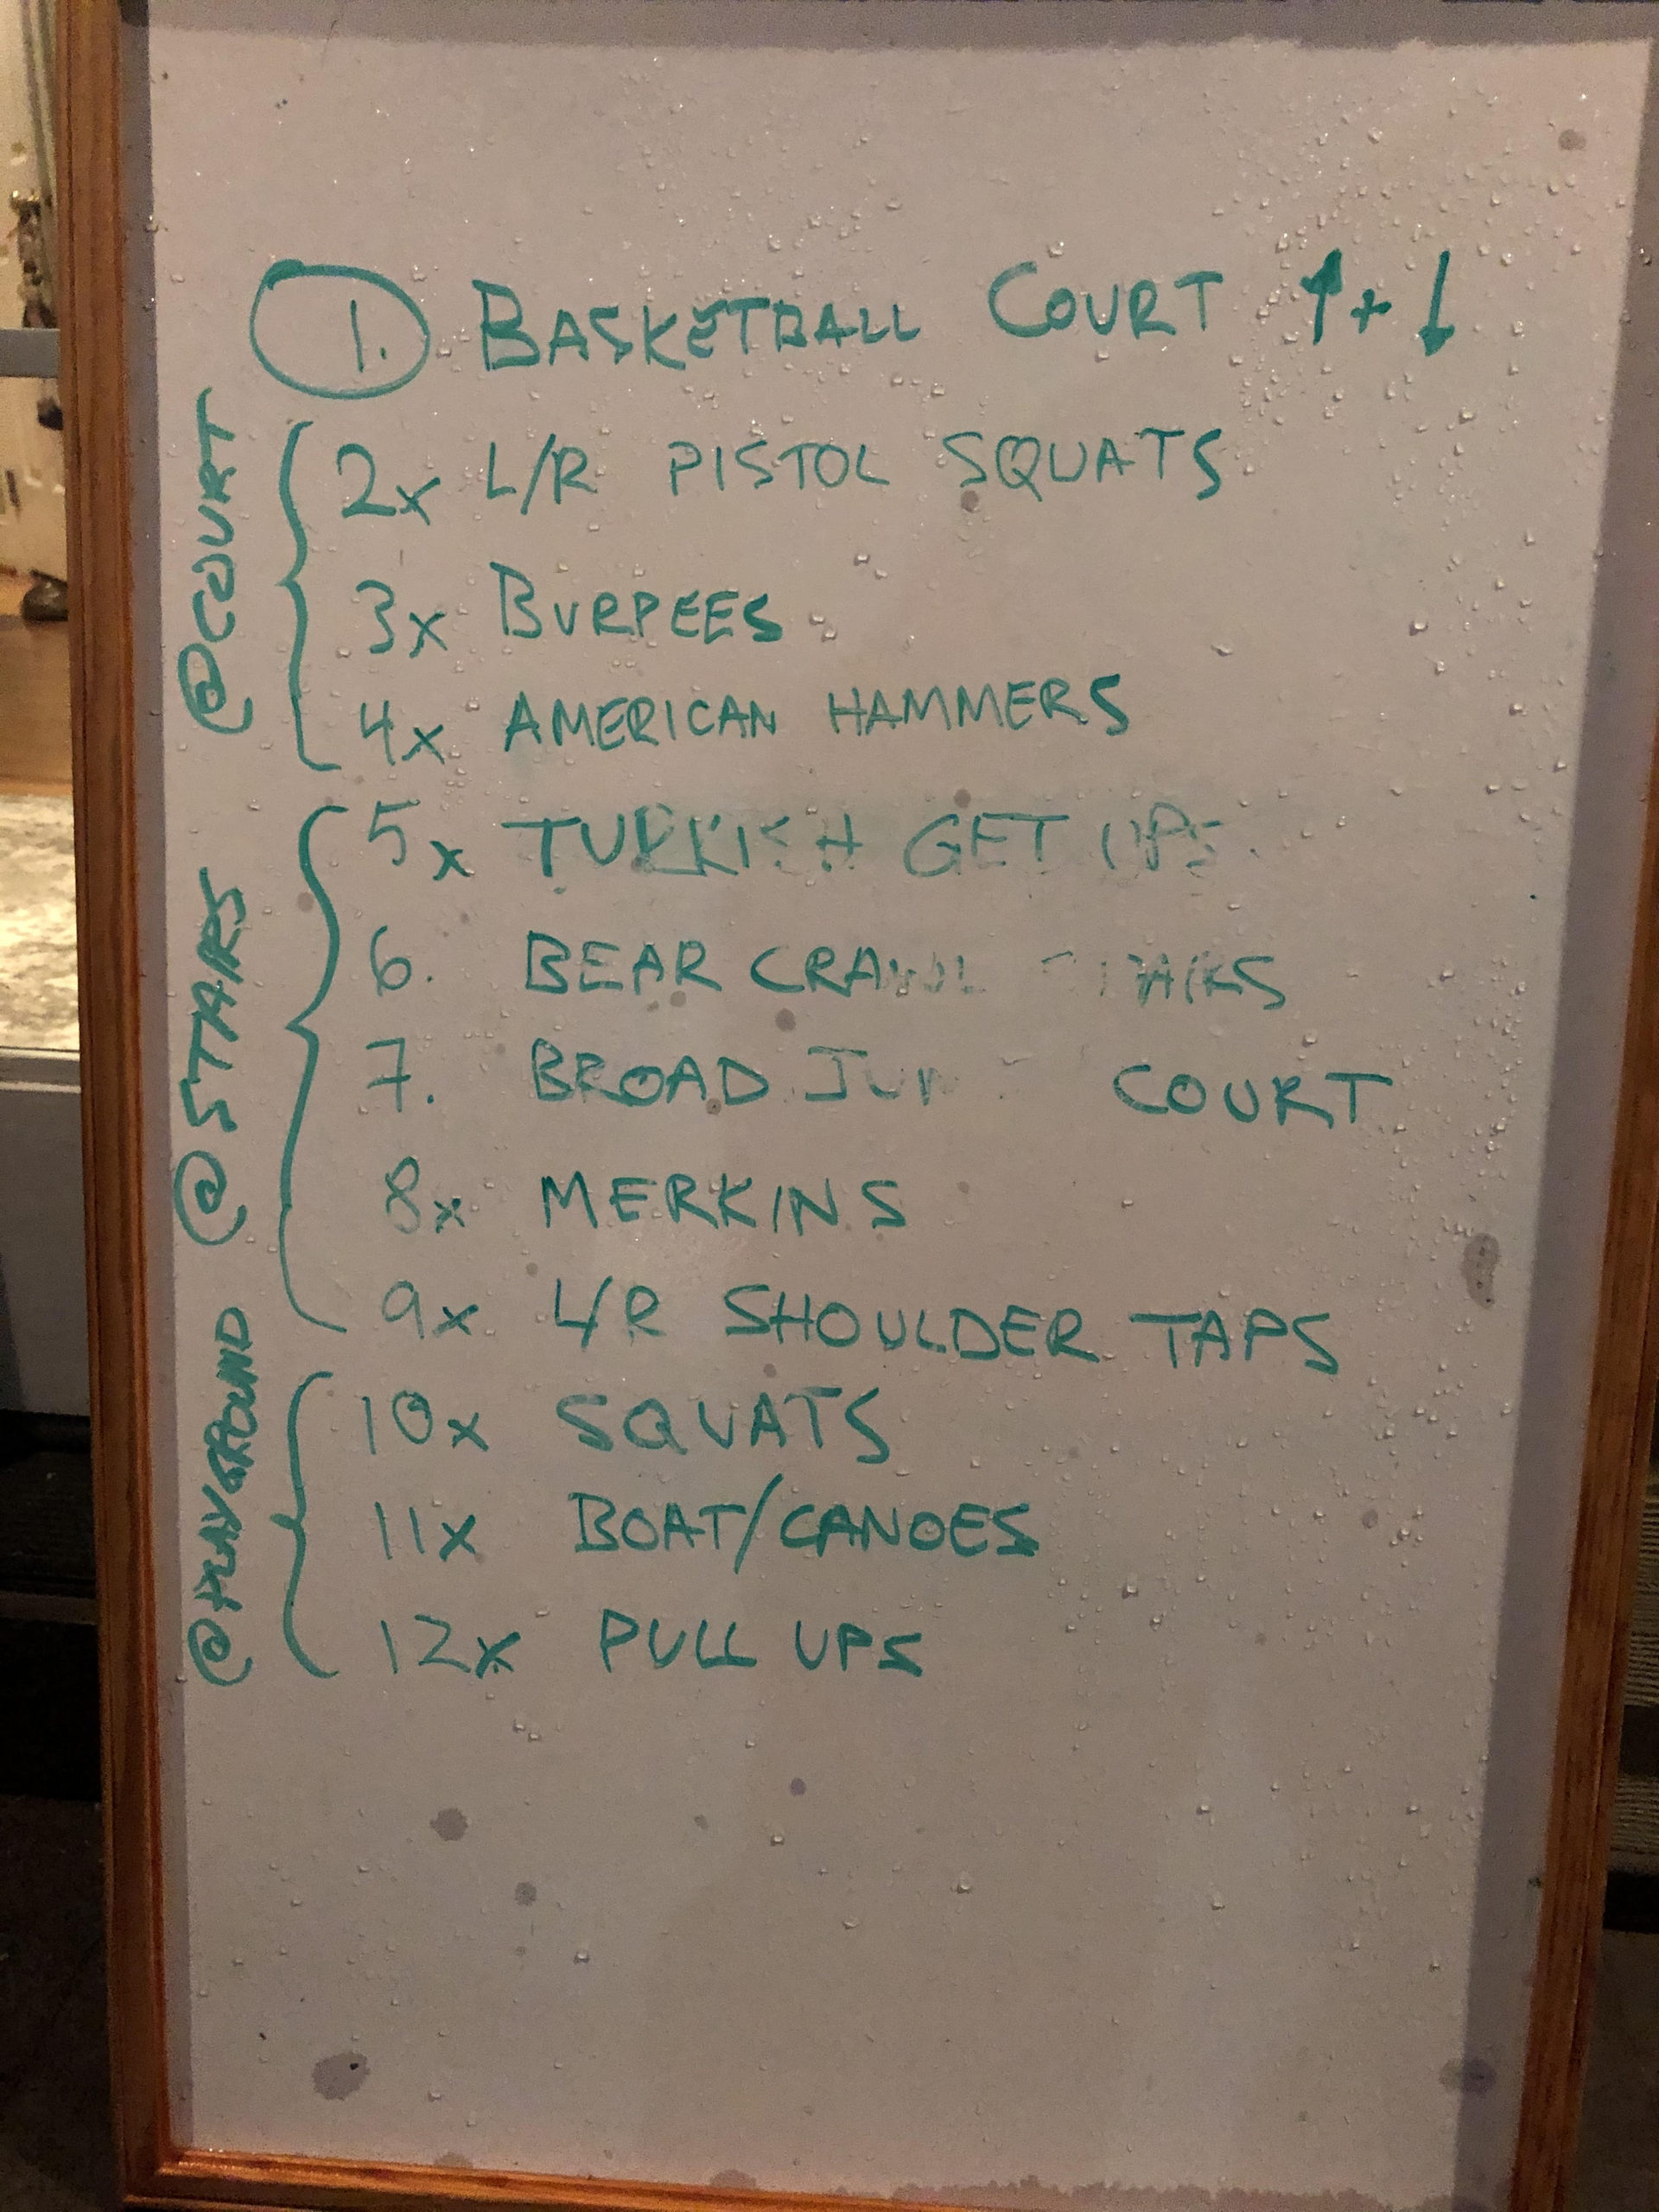 1. BASKETBALL COURT ↑ + ↓
@COURT
2x L/R PISTOL SQUATS
3x BURPEES
4x AMERICAN HAMMERS
@STAIRS
5x TURKISH GET UPS
6. BEAR CRAWL STAIRS
7. BROAD COURT
8x MERKINS
9x L/R SHOULDER TAPS
@PLAYGROUND
10x SQUATS
11x BOAT/CANOES
12x PULL UPS